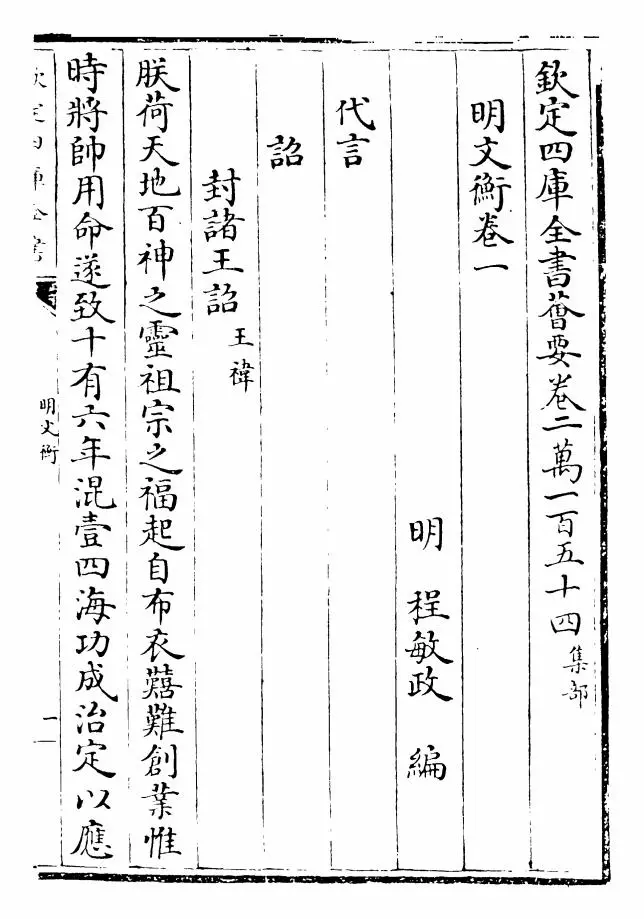 欽定四庫全書薈要卷二萬一百五十四 集部
明文衡卷一
明 程敏政 編
代言
詔
封諸王詔 王禕
朕荷天地百神之靈祖宗之福起自布衣囏難創業惟
時將帥用命遂致十有六年混壹四海功成治定以應
欽定四庫全書
明文衡
一